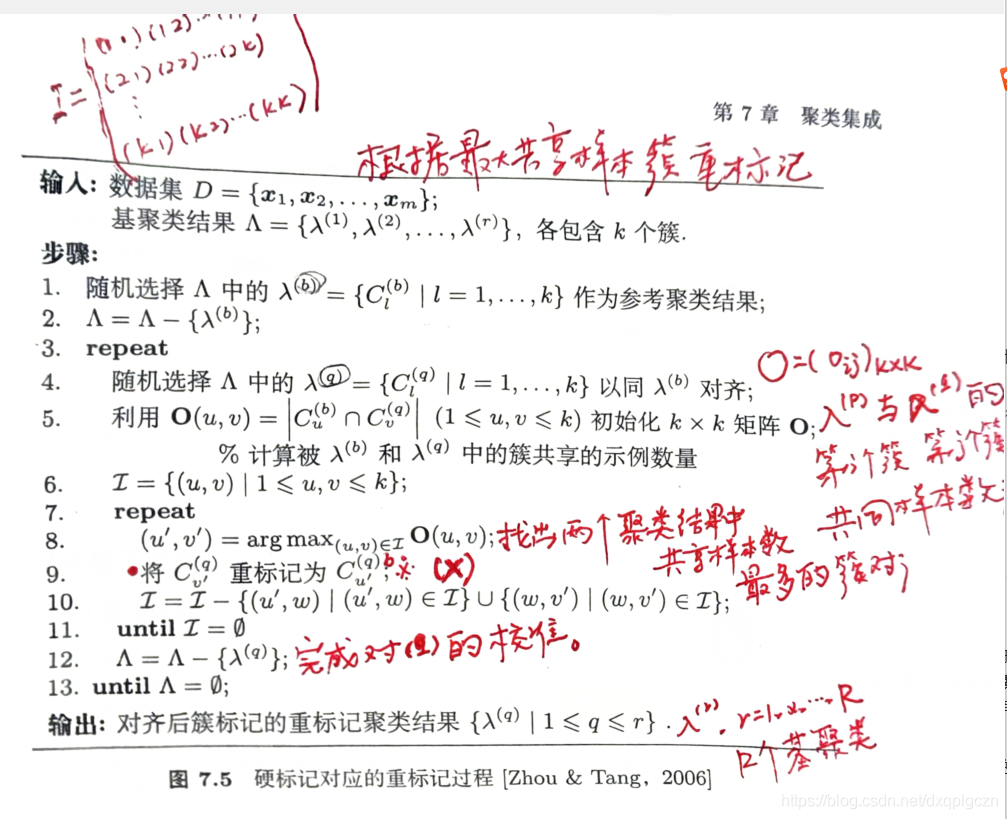 (11)(12)…
I = (21)(22)…(2k)
⋮
(k1)(k2)…(kk)
第 7 章 聚类集成
根据最大共享样本簇重标记
输入: 数据集 D = {x₁, x₂, . . . , xₘ};
基聚类结果 Λ = {λ⁽¹⁾, λ⁽²⁾, . . . , λ⁽ʳ⁾}, 各包含 k 个簇.
步骤:
1. 随机选择 Λ 中的 λ^(b) = {C_l^(b) | l = 1, . . . , k} 作为参考聚类结果;
2. Λ = Λ − {λ^(b)};
3. repeat
4. 随机选择 Λ 中的 λ^(q) = {C_l^(q) | l = 1, . . . , k} 以同 λ^(b) 对齐;
O=(Oij)k×k
5. 利用 O(u, v) = |C_u^(b) ∩ C_v^(q)| (1 ⩽ u, v ⩽ k) 初始化 k × k 矩阵 O;
λ^(P) 与 λ^(q) 的
% 计算被 λ^(b) 和 λ^(q) 中的簇共享的示例数量
第i个簇 第j个簇
共同样本数
6. I = {(u, v) | 1 ⩽ u, v ⩽ k};
7. repeat
8. (u′, v′) = arg max_(u,v)∈I O(u, v); 找出两个聚类结果中
共享样本数
最多的簇对;
9. 将 C_v′^(q) 重标记为 C_u′^(q); b (×)
10. I = I − {(u′, w) | (u′, w) ∈ I} ∪ {(w, v′) | (w, v′) ∈ I};
11. until I = ∅
12. Λ = Λ − {λ^(q)}; 完成对(q)的校准。
13. until Λ = ∅;
输出: 对齐后簇标记的重标记聚类结果 {λ^(q) | 1 ⩽ q ⩽ r} . λ^(r), r=1,2,…,R
R个基聚类
图 7.5 硬标记对应的重标记过程 [Zhou & Tang, 2006]
https://blog.csdn.net/dxqplgczn